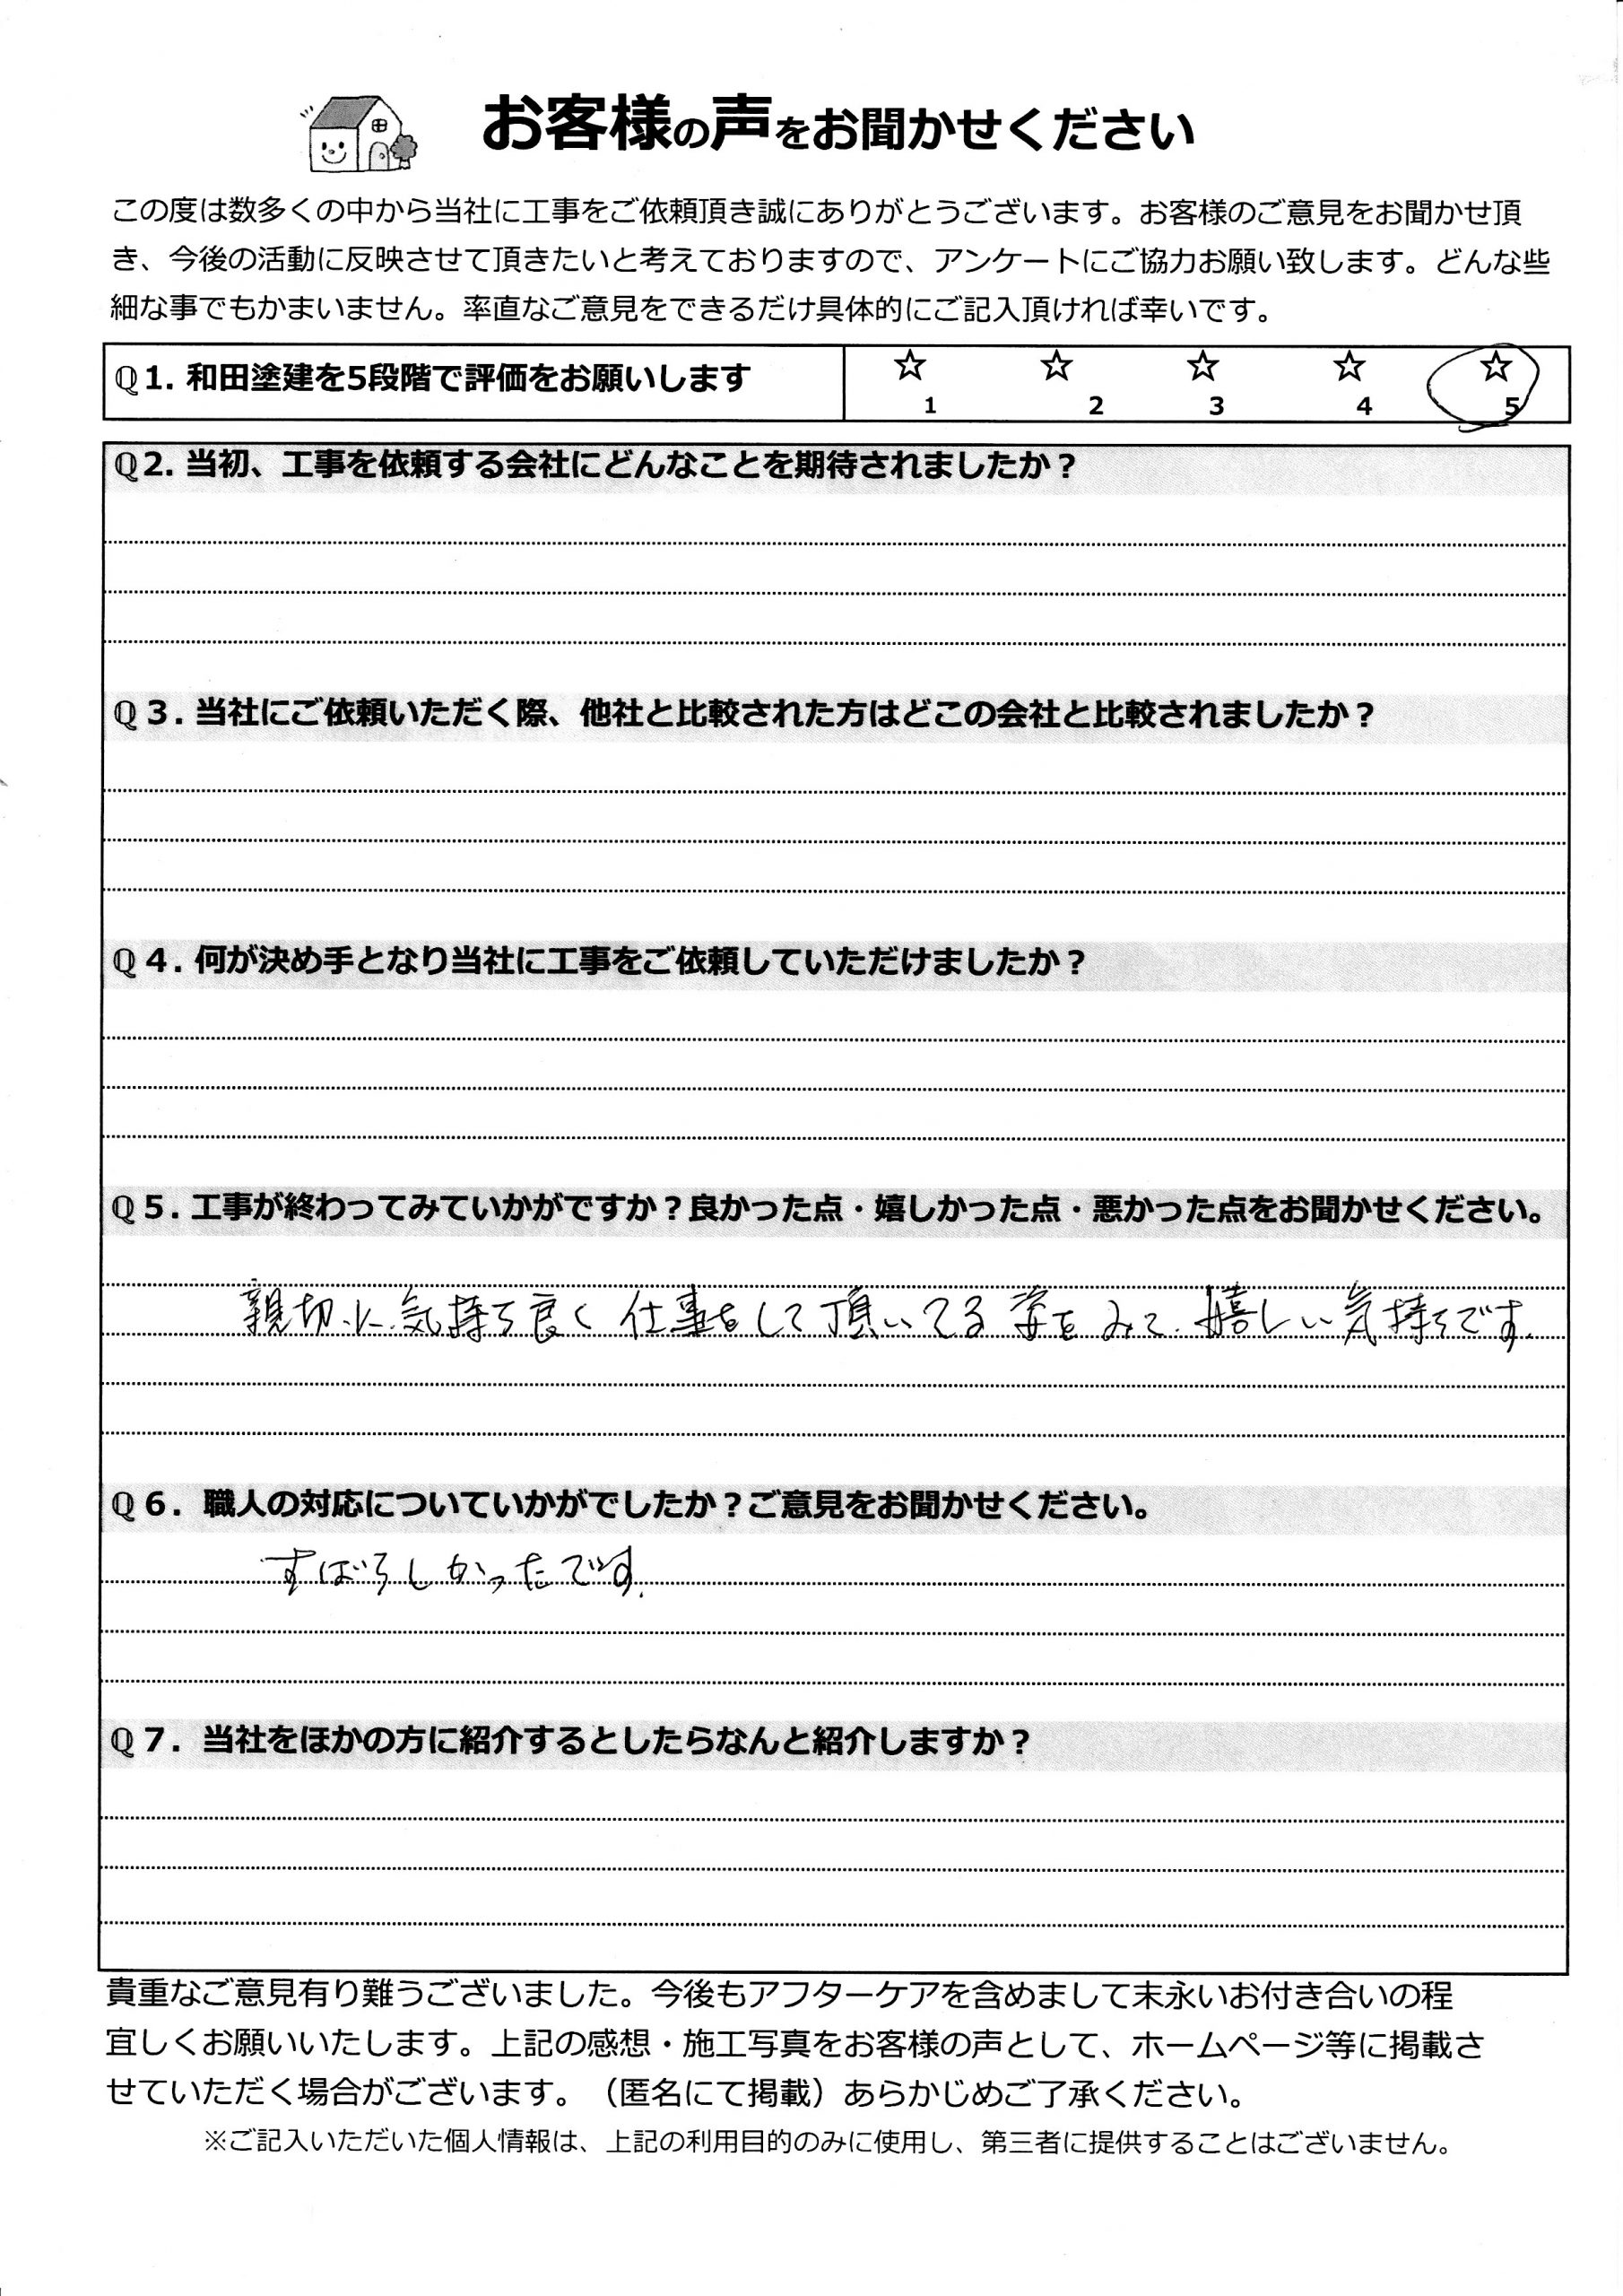 お客様の声をお聞かせください
この度は数多くの中から当社に工事をご依頼頂き誠にありがとうございます。お客様のご意見をお聞かせ頂
き、今後の活動に反映させて頂きたいと考えておりますので、アンケートにご協力お願い致します。どんな些
細な事でもかまいません。率直なご意見をできるだけ具体的にご記入頂ければ幸いです。
Q1. 和田塗建を5段階で評価をお願いします ☆ ☆ ☆ ☆ ☆
1 2 3 4 5
Q2. 当初、工事を依頼する会社にどんなことを期待されましたか？
Q３. 当社にご依頼いただく際、他社と比較された方はどこの会社と比較されましたか？
Q４. 何が決め手となり当社に工事をご依頼していただけましたか？
Q５. 工事が終わってみていかがですか？良かった点・嬉しかった点・悪かった点をお聞かせください。
親切に気持ち良く仕事をして頂いてる姿をみて、嬉しい気持ちです。
Q６. 職人の対応についていかがでしたか？ご意見をお聞かせください。
すばらしかったです。
Q７. 当社をほかの方に紹介するとしたらなんと紹介しますか？
貴重なご意見有り難うございました。今後もアフターケアを含めまして末永いお付き合いの程
宜しくお願いいたします。上記の感想・施工写真をお客様の声として、ホームページ等に掲載さ
せていただく場合がございます。（匿名にて掲載）あらかじめご了承ください。
※ご記入いただいた個人情報は、上記の利用目的のみに使用し、第三者に提供することはございません。